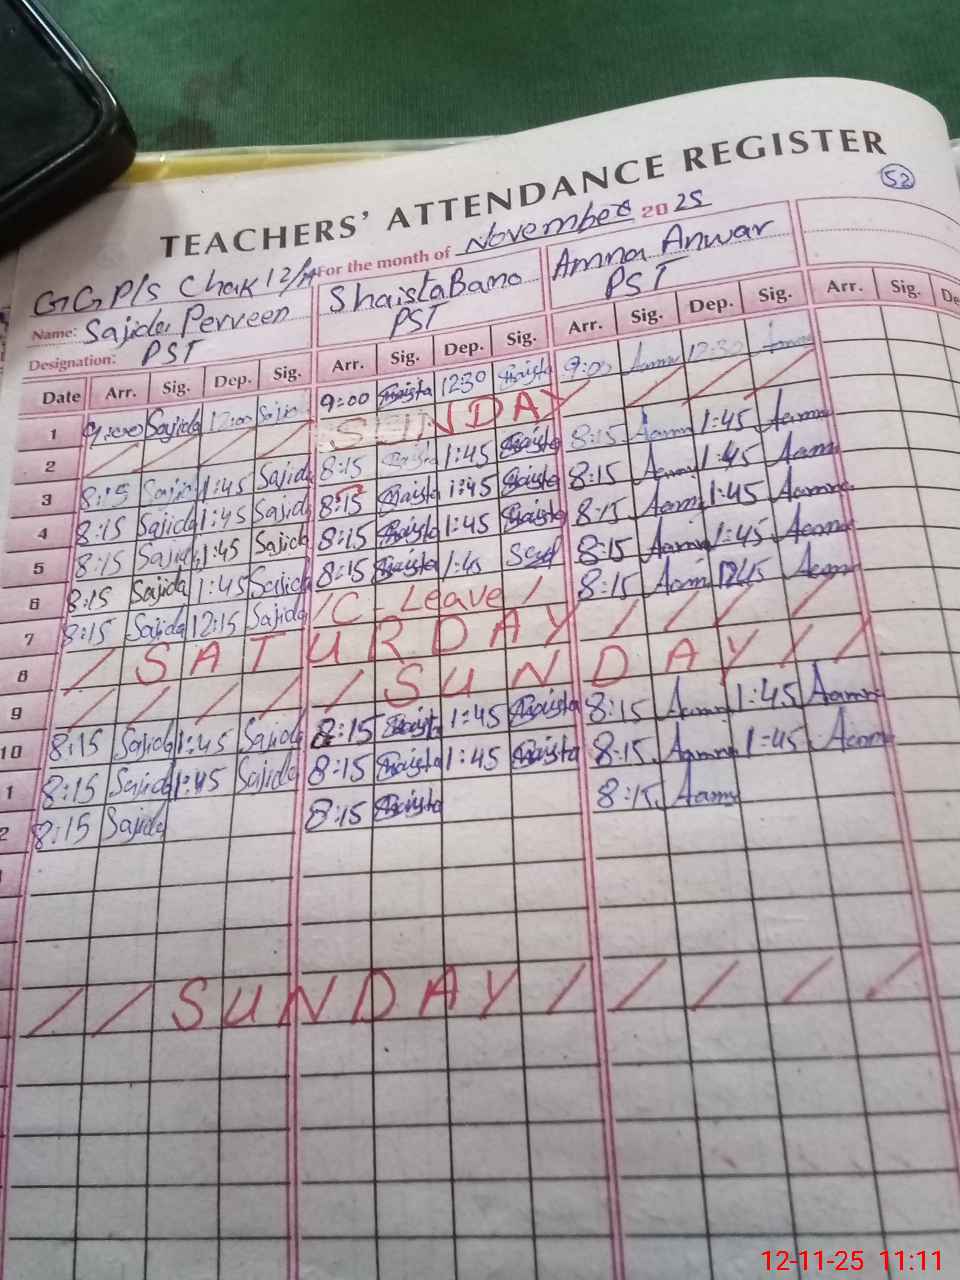 TEACHERS' ATTENDANCE REGISTER
52
For the month of November 2025
GGP/S Chak 12/A
Name: Sajida Perveen ShaistaBano Amna Anwar
Designation: PST PST PST
Date Arr. Sig. Dep. Sig. Arr. Sig. Dep. Sig. Arr. Sig. Dep. Sig. Arr. Sig. De
1 9:00 Sajida 12:00 Sajida 9:00 Shaista 12:30 Shaista 9:00 Aamna 12:30 Aamna
2 SUNDAY
3 8:15 Sajida 1:45 Sajida 8:15 Shaista 1:45 Shaista 8:15 Aamna 1:45 Aamna
4 8:15 Sajida 1:45 Sajida 8:15 Shaista 1:45 Shaista 8:15 Aamna 1:45 Aamna
5 8:15 Sajida 1:45 Sajida 8:15 Shaista 1:45 Shaista 8:15 Aamna 1:45 Aamna
6 8:15 Sajida 1:45 Sajida 8:15 Shaista 1:45 8:15 Aamna 1:45 Aamna
7 8:15 Sajida 12:15 Sajida / C-Leave / 8:15 Aamna Aamna
8 / SATURDAY / / / / /
9 / / / / / SUNDAY / /
10 8:15 Sajida 1:45 Sajida 8:15 Shaista 1:45 Shaista 8:15 Aamna 1:45 Aamna
1 8:15 Sajida 1:45 Sajida 8:15 Shaista 1:45 Shaista 8:15 Aamna 1:45 Aamna
2 8:15 Sajida 8:15 Shaista 8:15 Aamna
/ / SUNDAY / / / / /
12-11-25 11:11